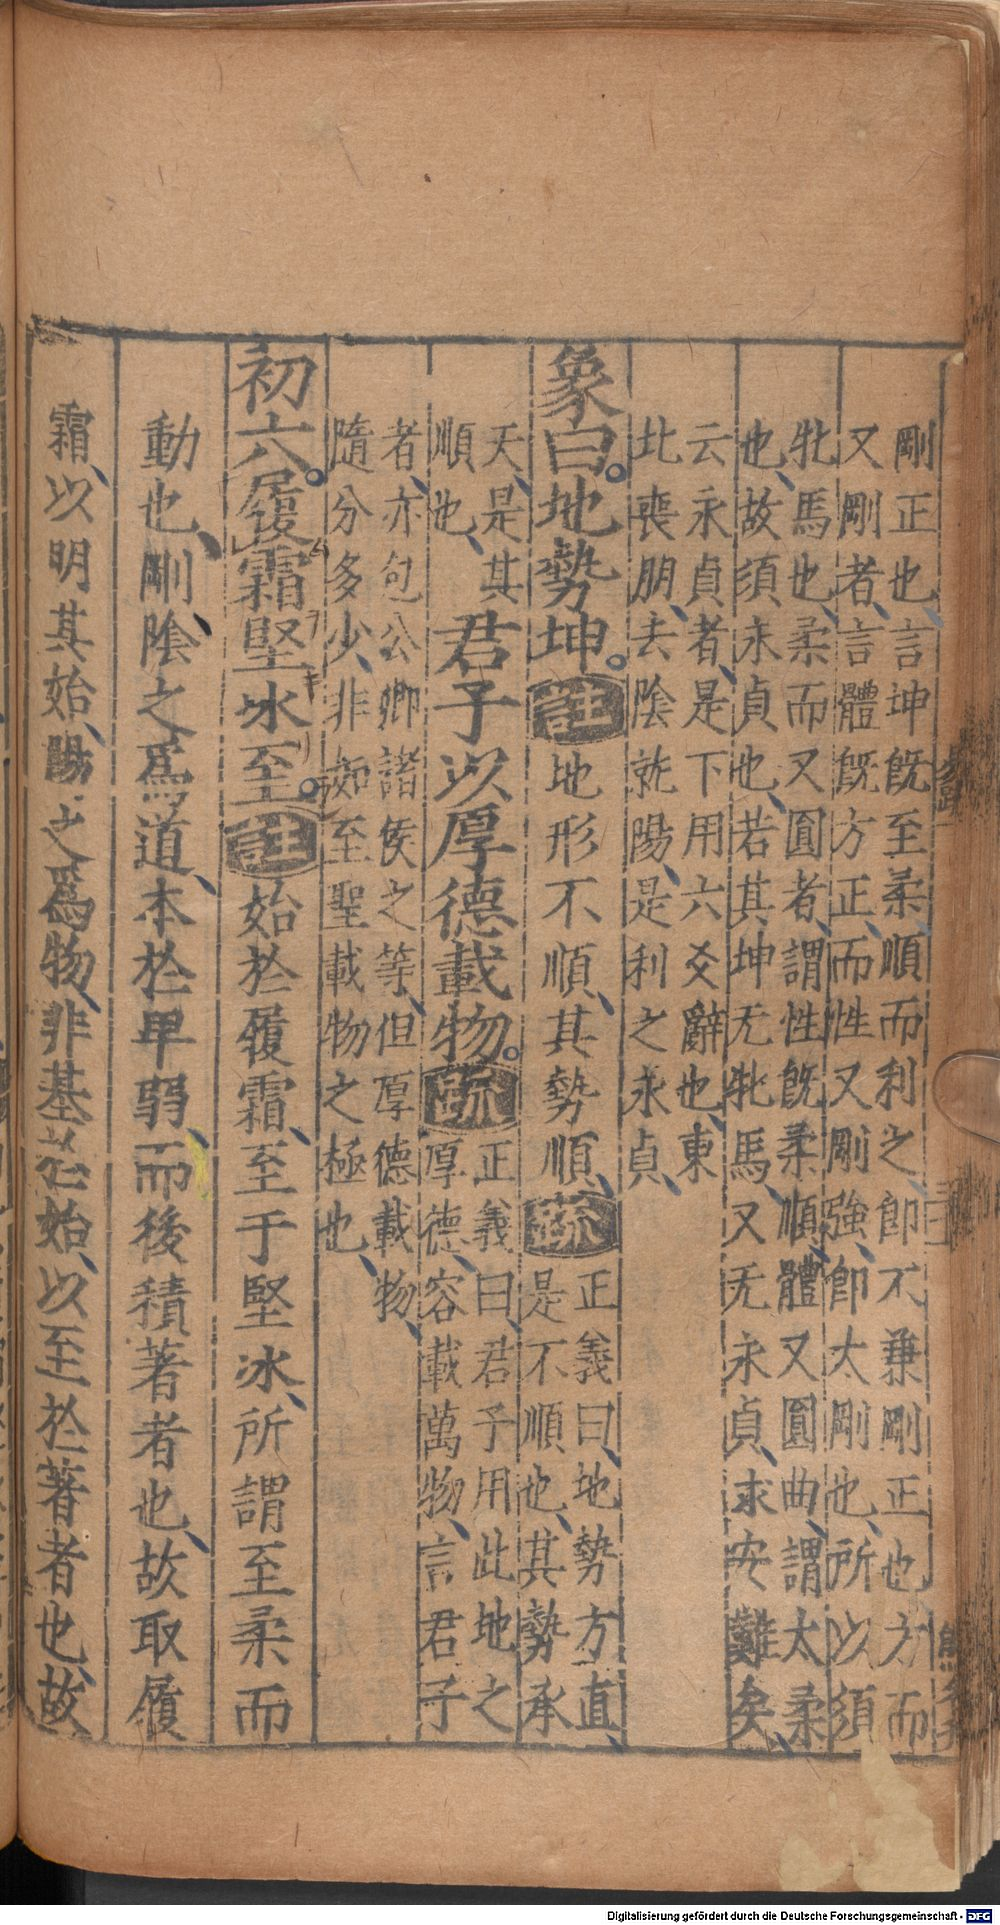 剛正也言坤旣至柔順而利之卽不兼剛正也方而
又剛者言體旣方正而性又剛強卽太剛也所以須
牝馬也柔而又圓者謂性旣柔順體又圓曲謂太柔
也故須永貞也若其坤无牝馬又无永貞求安難矣
云永貞者是下用六爻辭也東
北喪朋去陰就陽是利之永貞
象曰地勢坤註地形不順其勢順疏
正義曰地勢方直
是不順也其勢承
天是其
順也
君子以厚德載物疏
正義曰君子用此地之
厚德容載萬物言君子
者亦包公卿諸侯之等但厚德載物
隨分多少非如至聖載物之極也
初六履霜堅冰至註始於履霜至于堅冰所謂至柔而
動也剛陰之爲道本於卑弱而後積著者也故取履
霜以明其始陽之爲物非基於始以至於著者也故
Digitalisierung gefördert durch die Deutsche Forschungsgemeinschaft - DFG